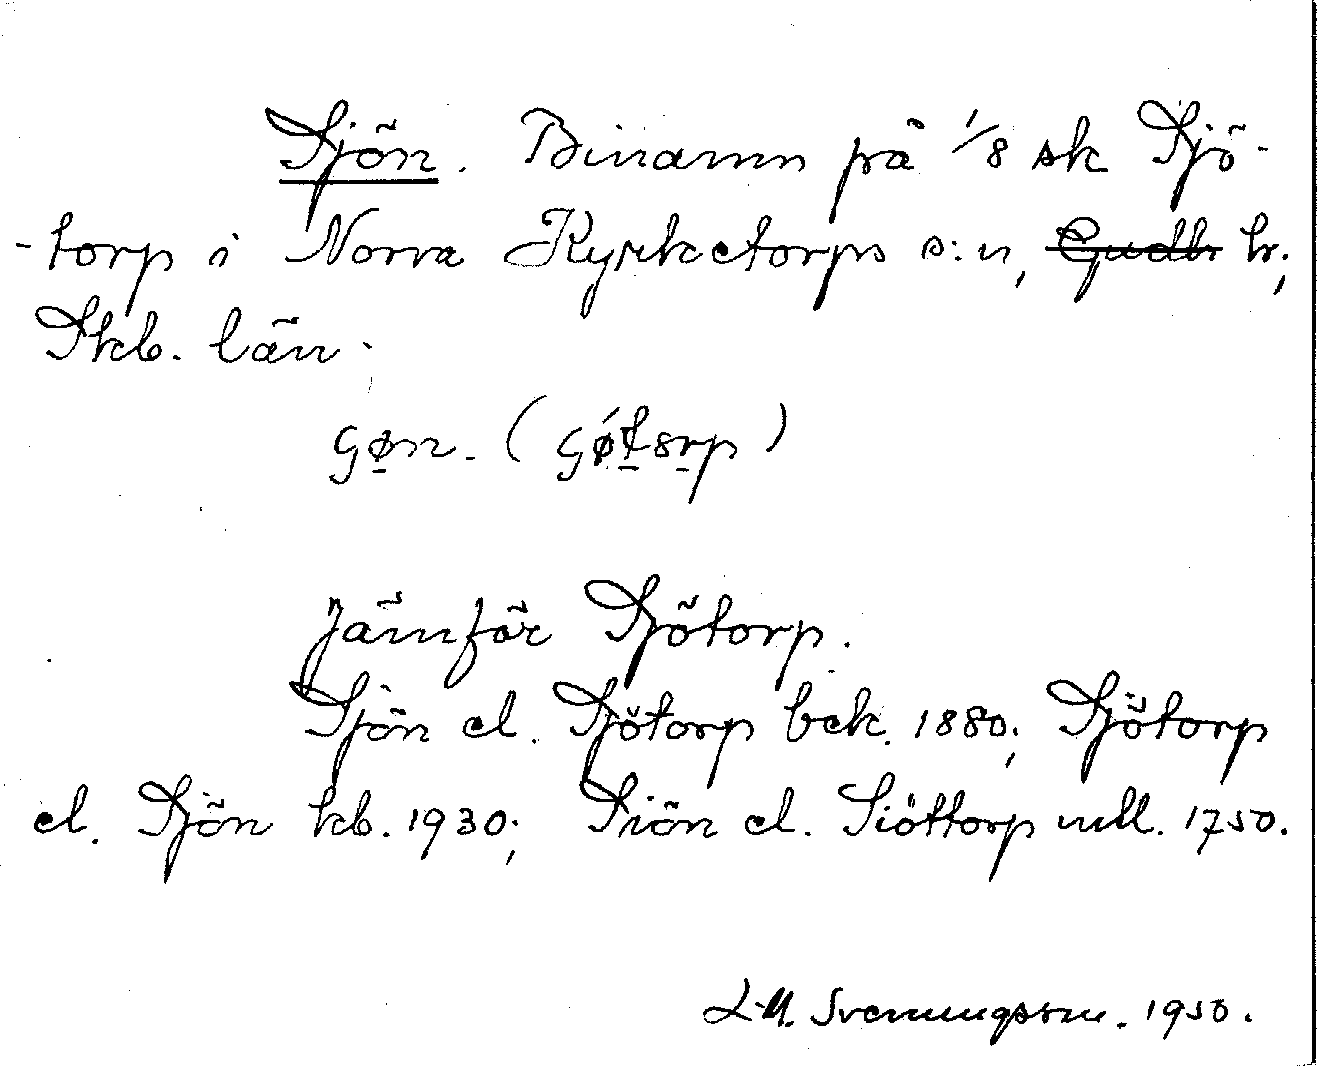 Sjön. Binamn på 1/8 sk Sjö-
-torp i Norra Kyrketorps s:n, Gudh hr;
Skb. län.
Jämför Sjötorp.
Sjön el. Sjötorp bek. 1880; Sjötorp
el. Sjön kb. 1930; Siön el. Siöttorp mtl. 1750.
L-M. Svenungsson. 1950.